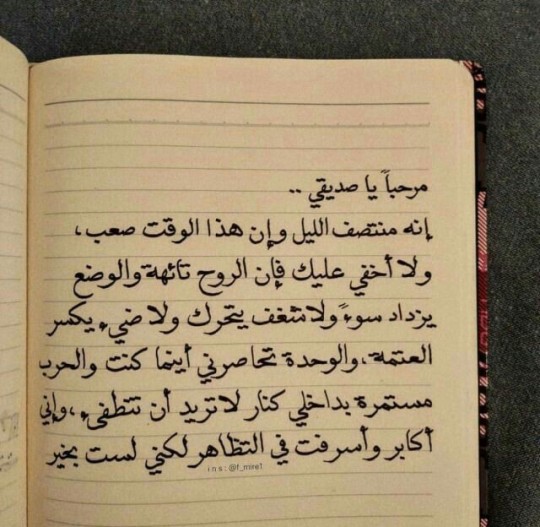 مرحباً يا صديقي ..
إنه منتصف الليل وإن هذا الوقت صعب،
ولا أخفي عليك فإن الروح تائهة والوضع
يزداد سوءً ولا شغف يتحرك ولا ضيء يكسر
العتمة، والوحدة تحاصرني أينما كنت والحرب
مستمرة بداخلي كنار لا تريد أن تنطفىء، وإني
أكابر وأسرفت في التظاهر لكني لست بخير
ins: @f_mire1